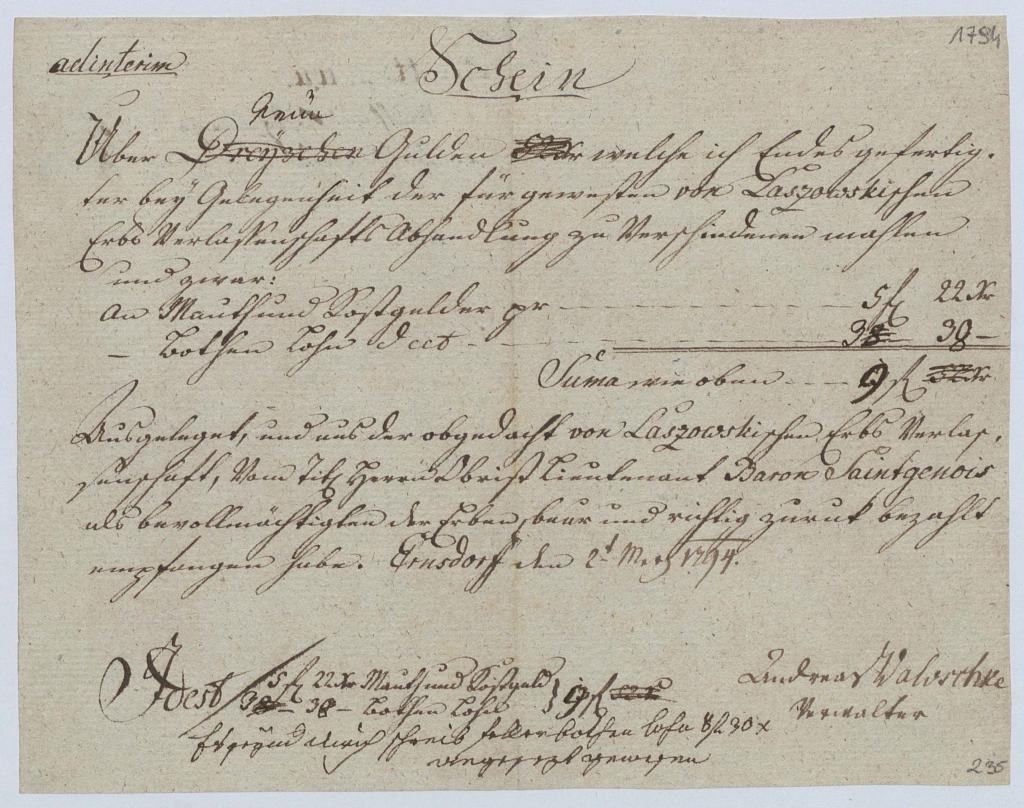 1794
adinterim
Schein
Neün
Über Dreyzehen Gulden Xr welche ich Endes gefertig-
ter bey Gelegenheit der für gewesten von Laszowskischen
Erbs Verlassenschafts Abhandlung zu Verschiedenen mahlen
und zwar:
An Mauth und Postgelder pr 5 f 22 Xr
– Bothen Lohn dect 3 38 –
Suma wie oben 9 f Xr
Ausgeleget, und aus der obgedacht von Laszowskischen Erbs Verlas-
senschaft, vom Tit. Herrn Obrist Lieutenant Baron Saintgenois
als bevollmächtigten der Erben, baar und richtig zuruk bezahlt
empfangen habe. Ernsdorf den 2t Merz 1794.
Idest 5 f 22 Xr Mauth und Postgeld
3 38 – Bothen Lohn } 9 f
Andreas Walaschke
Verwalter
durch schreib fehler bothen lohn 8 f 30 x
angesezt gewesen
235